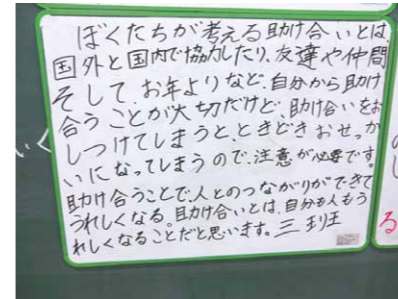 ぼくたちが考える助け合いとは、
国外と国内で協力したり、友達や仲間
そして、お年よりなど、自分から助け
合うことが大切だけど、助け合いをお
しつけてしまうと、ときどきおせっか
いになってしまうので、注意が必要です。
助け合うことで、人とのつながりができて
うれしくなる。助け合いとは、自分も人もう
れしくなることだと思います。三班
る